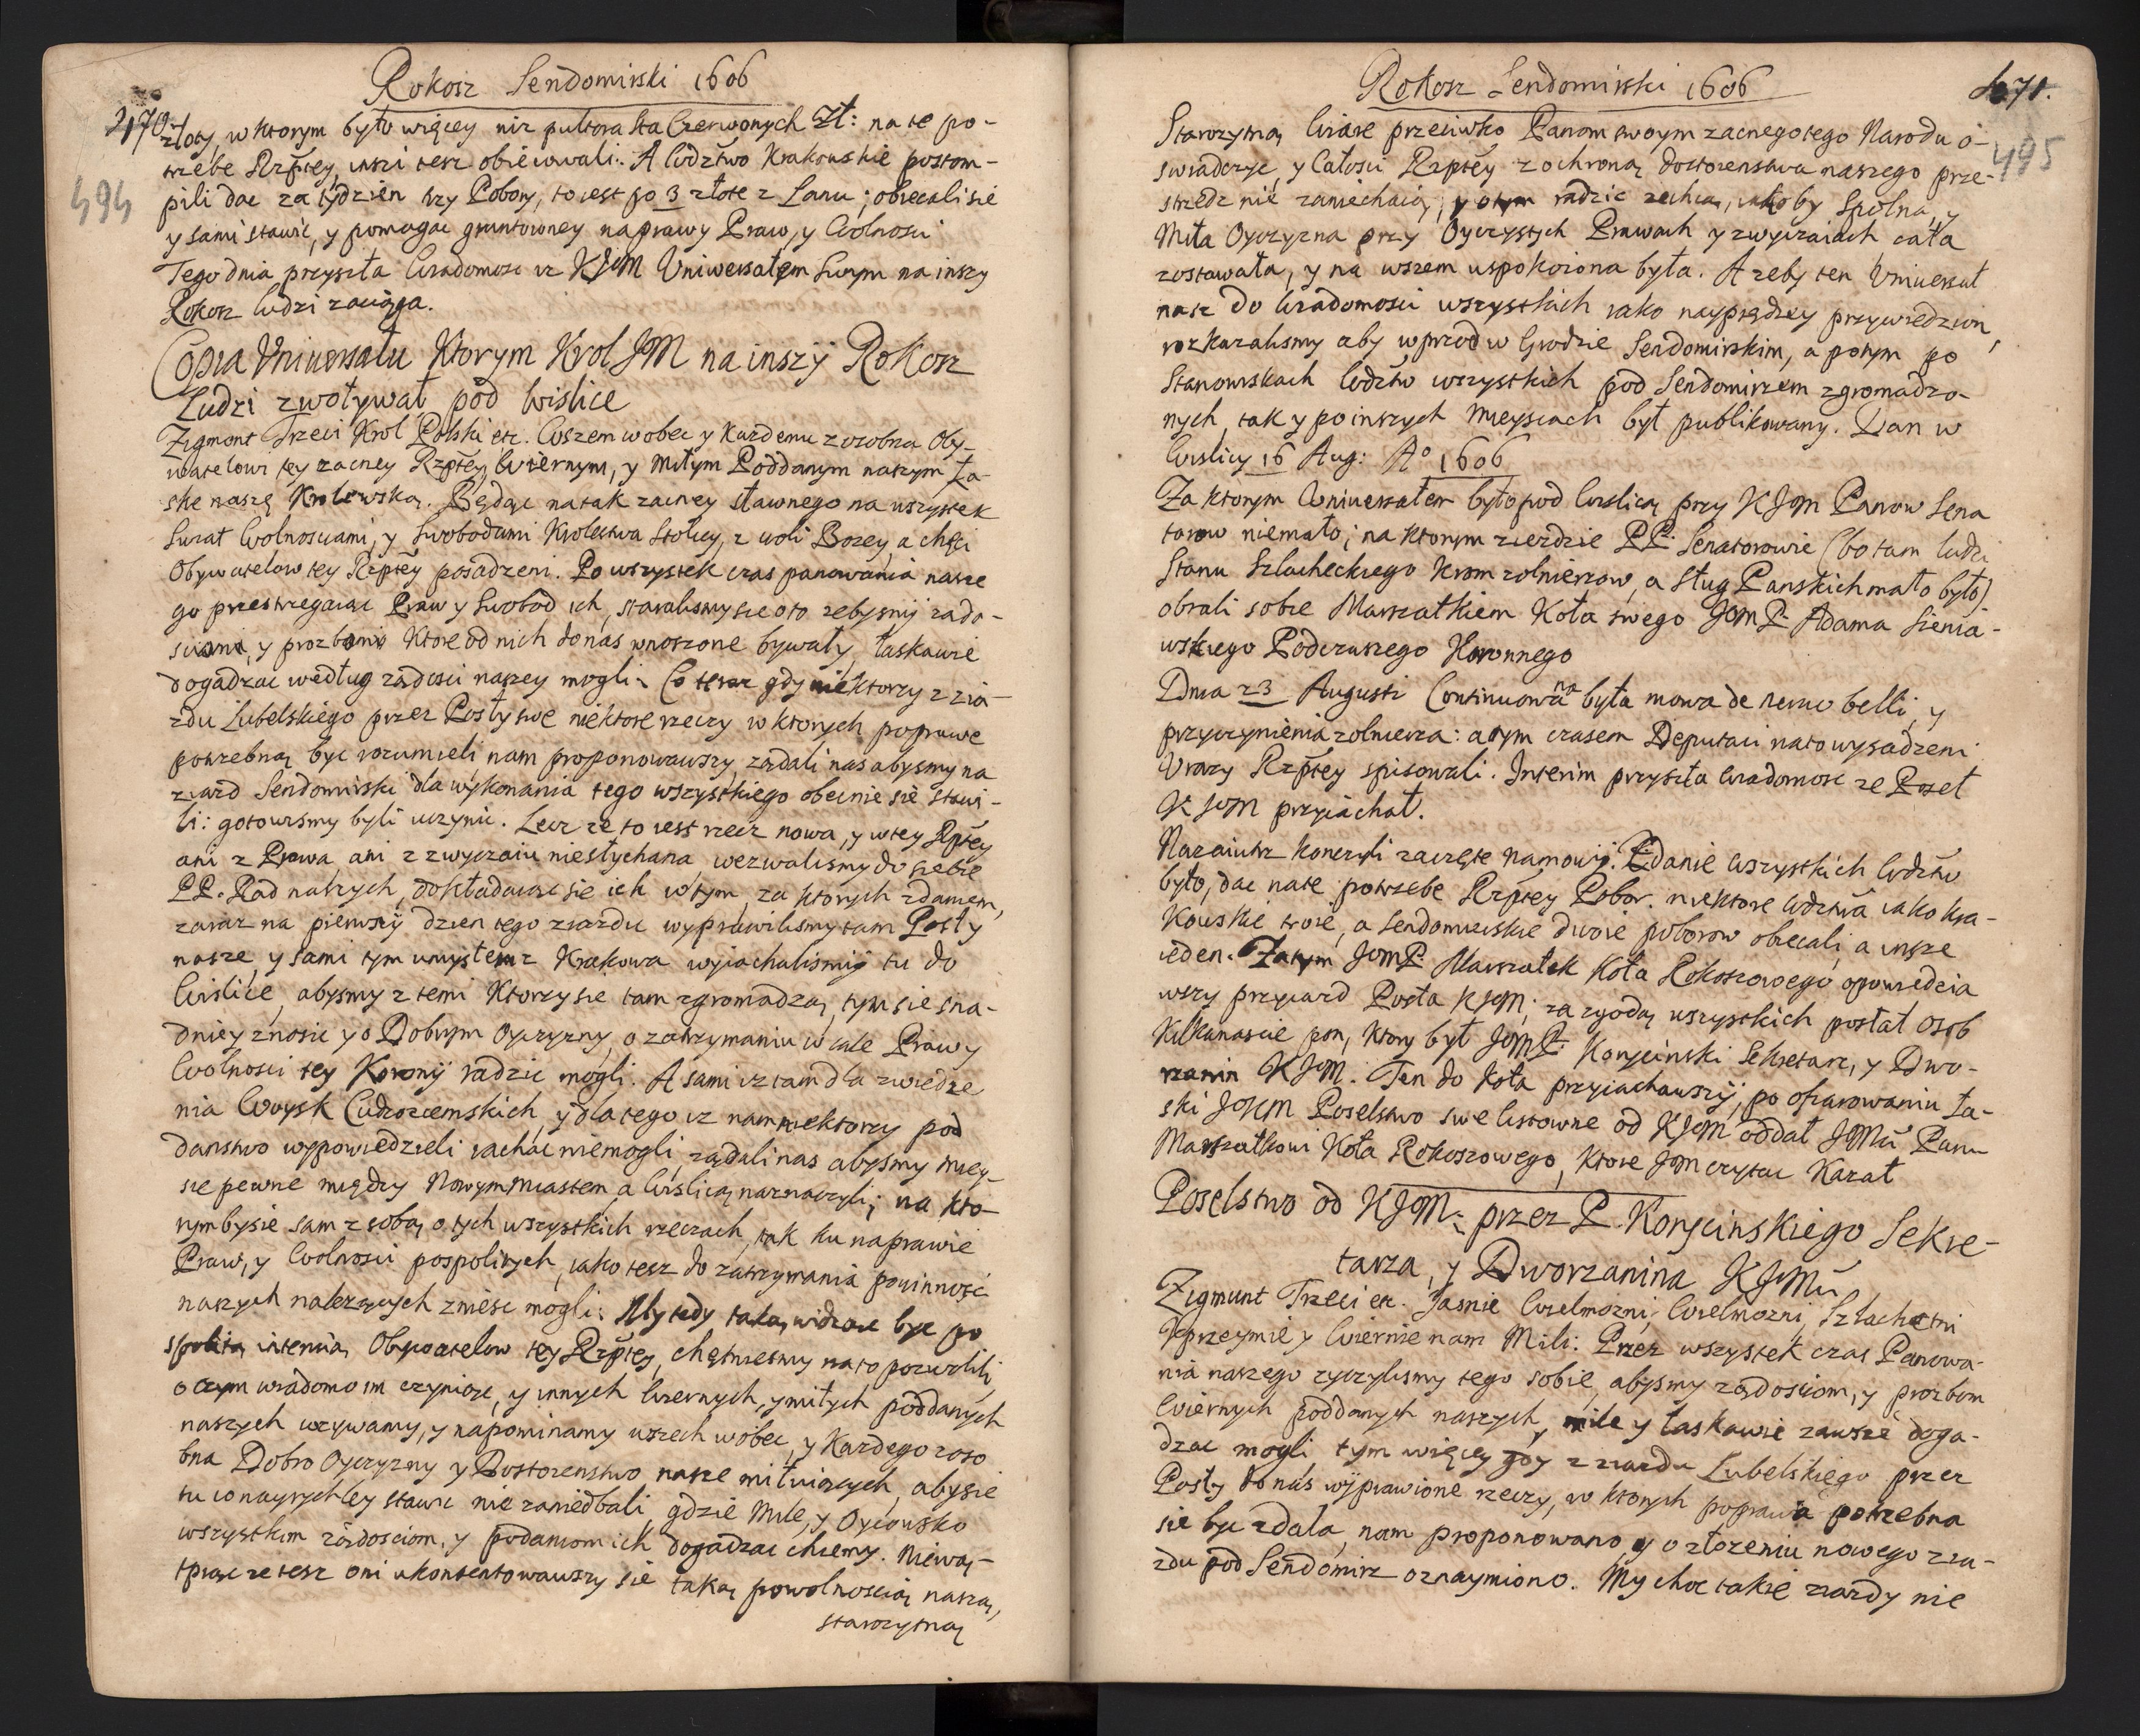 Rokosz Sendomirski 1606
470.
494
złoty, w ktorym było więcey niz pułtora sta Czerwonych Zł: na te po-
trzebe Rzptey, inszi tesz obiecowali. A Wdztwo Krakowskie postom-
pili dac za tydzien trzy Pobory, to iest po 3 złote z Łanu; obiecali się
y sami stawic, y pomagac gruntowney naprawy Praw, y Wolnosci
Tego dnia przyszła Wiadomosc iz KJeM Vniwersałem Swym na inszy
Rokosz ludzi zaciąga.
Copia Vniwersału Ktorym Krol JeM na inszÿ Rokosz
Ludzi zwoływał pod Wislice
Zigmont Trzeci Krol Polski etc. Wszem wobec y Kazdemu zosobna Oby-
watelowi tey zacney Rzptey, Wiernym, y Miłym Poddanym naszym ła-
skę naszę Krolewską. Będąc na tak zacney sławnego na wszystek
Swiat Wolnosciami, y Swobodami Krolestwa Stolicy, z woli Bozey, a chęci
Obywatelow tey Rzptey posadzeni. Po wszystek czas panowania nasze
go przestrzegaiąc Praw y Swobod ich, staralismy sie oto zebysmÿ ządo-
sciami, y prozbami Ktore od nich do nas wnoszone bywały, łaskawie
dogadzac według ządosci naszey mogli. Co teraz gdy niektorzy z zia-
zdu Lubelskiego przez Posły swe niektore rzeczy w ktorych poprawe
potrzebną byc rozumieli nam proponowawszy, ządali nas abysmy na
ziazd Sendomirski dla wykonania tego wszystkiego obecnie się stawi-
li: gotowismy byli uczynic. Lecz ze to iest rzecz nowa, y w tey Rptey
ani z Prawa, ani z zwyczaiu niesłychana wezwalismy do siebie
PP. Rad naszych, dokładaiąc się ich w tym, za ktorych zdaniem,
zaraz na pierwszÿ dzien tego ziazdu wyprawilismy tam Posły
nasze, y sami tym umysłem z Krakowa wyiachalismÿ tu do
Wislice, abysmy z temi Ktorzy sie tam zgromadzą, tym sie sna-
dniey znosic y o Dobrym Oyczyzny, o zatrzymaniu w cale Praw y
Wolnosci tey Koronÿ radzic mogli. A sami iz tam dla zwiedze
nia Woysk Cudzoziemskich, y dla tego iz nam niektorzy pod
danstwo wypowiedzieli iachac niemogli, ządali nas abysmy miey-
sce pewne między Nowym miastem a Wislicą naznaczyli; na kto-
rym by się sam z sobą o tych wszystkich rzeczach, tak ku naprawie
Praw, y Wolnosci pospolitych, iako tesz do zatrzymania powinnosc
naszych nalezących zniesc mogli. My tedy taką widząc byc po
spolitą intencią Obywatelow tey Rzptey, chętniesmy na to pozwolili
o czym wiadomo im czyniąc, y innych wiernych, y miłych poddanych
naszych wzywamy, y napominamy wszech wobec, y Kazdego zoso
bna Dobro Oyczyzny y Dostoienstwo nasze miłuiących, aby się
tu io nayrychley stawic nie zaniedbali, gdzie Mile, y Oycowsko
wszystkim ządosciom, y podaniom ich dogadzac chcemy. Niewą-
tpiąc ze tesz oni ukontentowawszy się taką powolnoscią naszą,
starozytną
Rokosz Sendomirski 1606
471.
495
Starozytną Wiarę przeciwko Panom swoym zacnego tego Narodu o-
swiadczyc, y Całosci Rzptey z ochroną dostoienstwa naszego prze-
strzedz nie zaniechaią, y otym radzic zechcą, iakoby spolna, y
Miła Oyczyzna przy Oyczystych Prawach y zwyczaiach cała
zostawała, y na wszem uspokoiona była. A zeby ten Vniwersał
nasz do Wiadomosci wszystkich iako nayprędzey przywiedzion,
rozkazalismy aby wprzod w Grodzie Sendomirskim, a potym po
Stanowiskach Wdztw wszystkich pod Sendomirzem zgromadzo-
nych, tak y po inszych mieyscach był publikowany. Dan w
Wislicy 16 Aug: Aº 1606
Za ktorym Vniwersałem było pod Wislicą przy KJeM Panow Sena
torow niemało; na ktorym ziezdzie PP. Senatorowie (bo tam ludzi
Stanu Szlacheckiego krom zolnierzow, a Sług Panskich mało było)
obrali sobie Marszałkiem Koła swego JemP. Adama Sienia-
wskiego Podczaszego Koronnego
Dnia 23 Augusti Continuowana była mowa de nervo belli, y
przyczynienia zolnierza: a tym czasem Deputaci na to wysadzeni
Vrazy Rzptey spisowali. Interim przyszła Wiadomosc ze Poseł
KJeM przyiachał.
Nazaiutrz konczyli zaczęte namowÿ. Zdanie wszystkich Wdztw
było, dac na te potrzebe Rzptey Pobor. niektore Wdztwa iako Kra-
kowskie troie, a Sendomirskie dwoie poborow obiecali, a insze
ieden. Zatym JemP. Marszałek Koła Rokoszowego opowiedzia
wszy przyiazd Posła KJeM; za zgodą wszystkich posłał osob
Kilkanascie pon, ktory był JemP. Koryczinski Sekretarz, y Dwo-
rzanin KJeM. Ten do koła przyiachawszÿ, po ofiarowaniu Ła-
ski JKeM Poselstwo swe listowne od KJeM oddał JeMu Panu
Marszałkowi Koła Rokoszowego, ktore Jem czytac Kazał
Poselstwo od KJeM: przez P. Koryczinskiego Sekre-
tarza, y Dworzanina KJeMu
Zigmunt Trzeci etc. Jasnie Wielmozni, Wielmozni, Szlachetni
Vprzeymie y Wiernie nam Mili: Przez wszystek czas Panowa-
nia naszego zyczylismy tego sobie, abysmy ządosciom, y prozbom
Wiernych poddanych naszych, mile y łaskawie zawsze doga-
dzac mogli, tym więcey gdy z ziazdu Lubelskiego przez
Posły do nas wyprawione rzeczy, w ktorych poprawa potrzebna
się byc zdała, nam proponowano y o złozeniu nowego zia-
zdu pod Sendomirz oznaymiono. My choc takie ziazdy nie